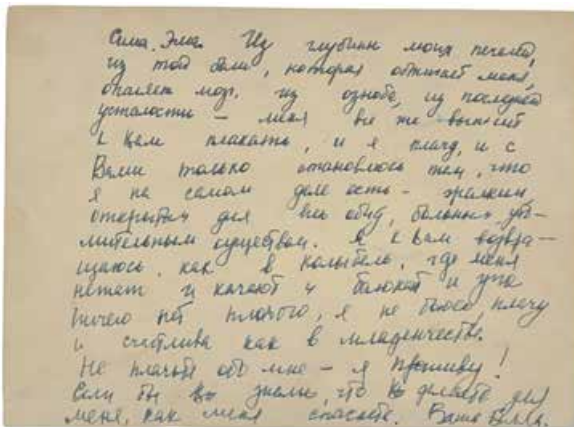 Сима, Эма. Из глубины моих печалей,
из той боли, которая обжигает меня,
опаляет мозг, из озноба, из последней
усталости – меня все же выносит
к Вам плакать, и я плачу, и с
Вами только становлюсь тем, что
я на самом деле есть – жалким,
открытым для всех обид, больным, уто-
мительным существом. Я к Вам возвра-
щаюсь, как в колыбель, где меня
нежат и качают и балюкают и уже
ничего нет плохого, я не боюсь, плачу
и счастлива как в младенчестве.
Не плачьте обо мне – я проживу!
Если бы Вы знали, что Вы делаете для
меня, как меня спасаете. Ваша Белла.